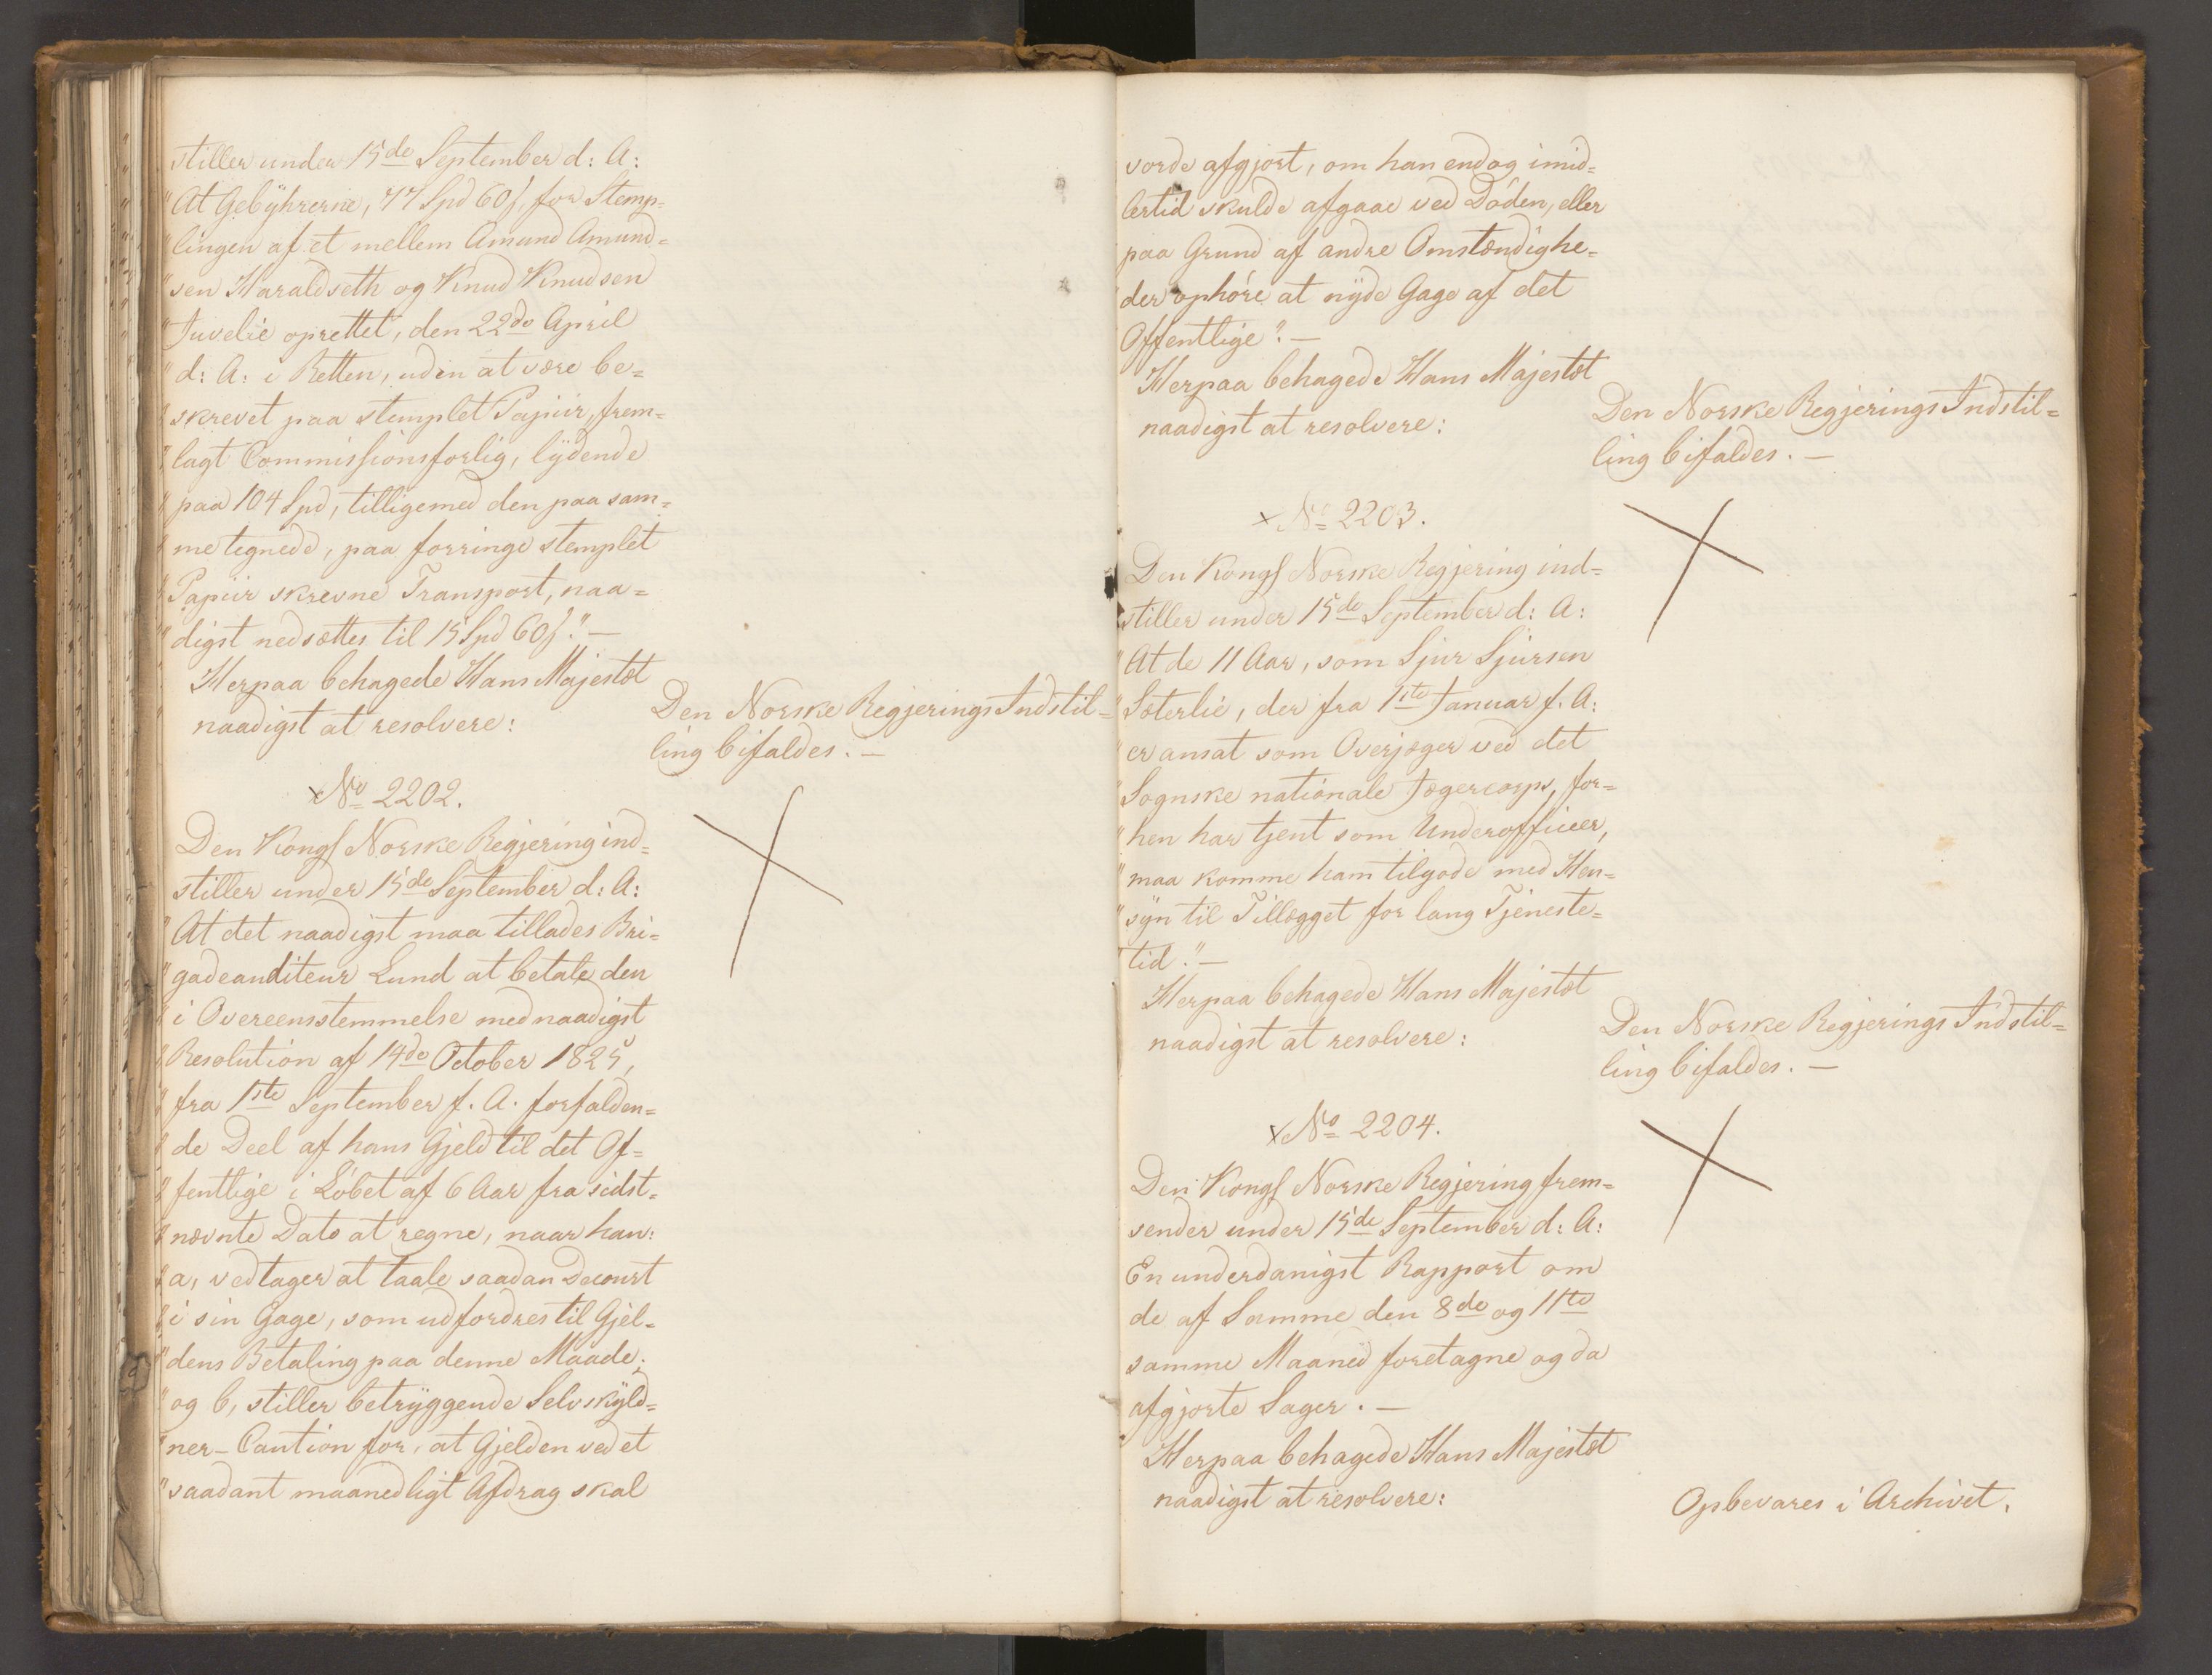 stiller under 15de September d: A:
"At Gebÿhrerne, 77 Spd 60 ſ, for Stemp=
"lingen af et mellem Amund Amund=
"sen Haraldseth og Knud Knudsen
"Juvelie oprettet, den 22de April
"d: A: i Retten, uden at være be=
"skrevet paa stemplet Papiir, frem=
"lagt Commissionsforlig, lÿdende
"paa 104 Spd, tilligemed den paa sam=
"me tegnede, paa forringe stemplet
"Papiir skrevne Transport, naa=
"digst nedsættes til 15 Spd 60 ſ." —
Herpaa behagede Hans Majestæt
naadigst at resolvere:
Den Norske Regjerings Indstil=
ling bifaldes. —
× No 2202.
Den Kongl Norske Regjering ind=
stiller under 15de September d: A:
"At det naadigst maa tillades Bri=
"gadeauditeur Lund at betale den
"i Overeensstemmelse med naadigst
"Resolution af 14de October 1825,
"fra 1ste September f. A. forfalden=
"de Deel af hans Gjeld til det Of=
"fentlige i Løbet af 6 Aar fra sidst=
"nævnte Dato at regne, naar han:
"a, vedtager at taale saadan Decourt
"i sin Gage, som udfordres til Gjel=
"dens Betaling paa denne Maade;
"og b, stiller betrÿggende Selvskÿld=
"ner-Caution for, at Gjelden ved et
"saadant maanedligt Afdrag skal
vorde afgjort, om han endog imid=
lertid skulde afgaae ved Døden, eller
"paa Grund af andre Omstændighe=
"der ophøre at nÿde Gage af det
Offentlige". —
Herpaa behagede Hans Majestæt
naadigst at resolvere:
Den Norske Regjerings Indstil=
ling bifaldes. —
× No 2203.
Den Kongl Norske Regjering ind=
stiller under 15de September d: A:
"At de 11 Aar, som Sjur Sjursen
"Sæterlie, der fra 1ste Januar f. A:
"er ansat som Overjæger ved det
"Sognske nationale Jægercorps, for=
"hen har tjent som Underofficeer,
"maa komme ham tilgode med Hen=
"sÿn til Tillægget for lang Tjeneste=
"tid." —
Herpaa behagede Hans Majestæt
naadigst at resolvere:
Den Norske Regjerings Indstil=
ling bifaldes. —
× No 2204.
Den Kongl Norske Regjering frem=
sender under 15de September d: A:
En underdanigst Rapport om
de af Samme den 8de og 11te
samme Maaned foretagne og da
afgjorte Sager. —
Herpaa behagede Hans Majestæt
naadigst at resolvere:
Opbevares i Archivet.